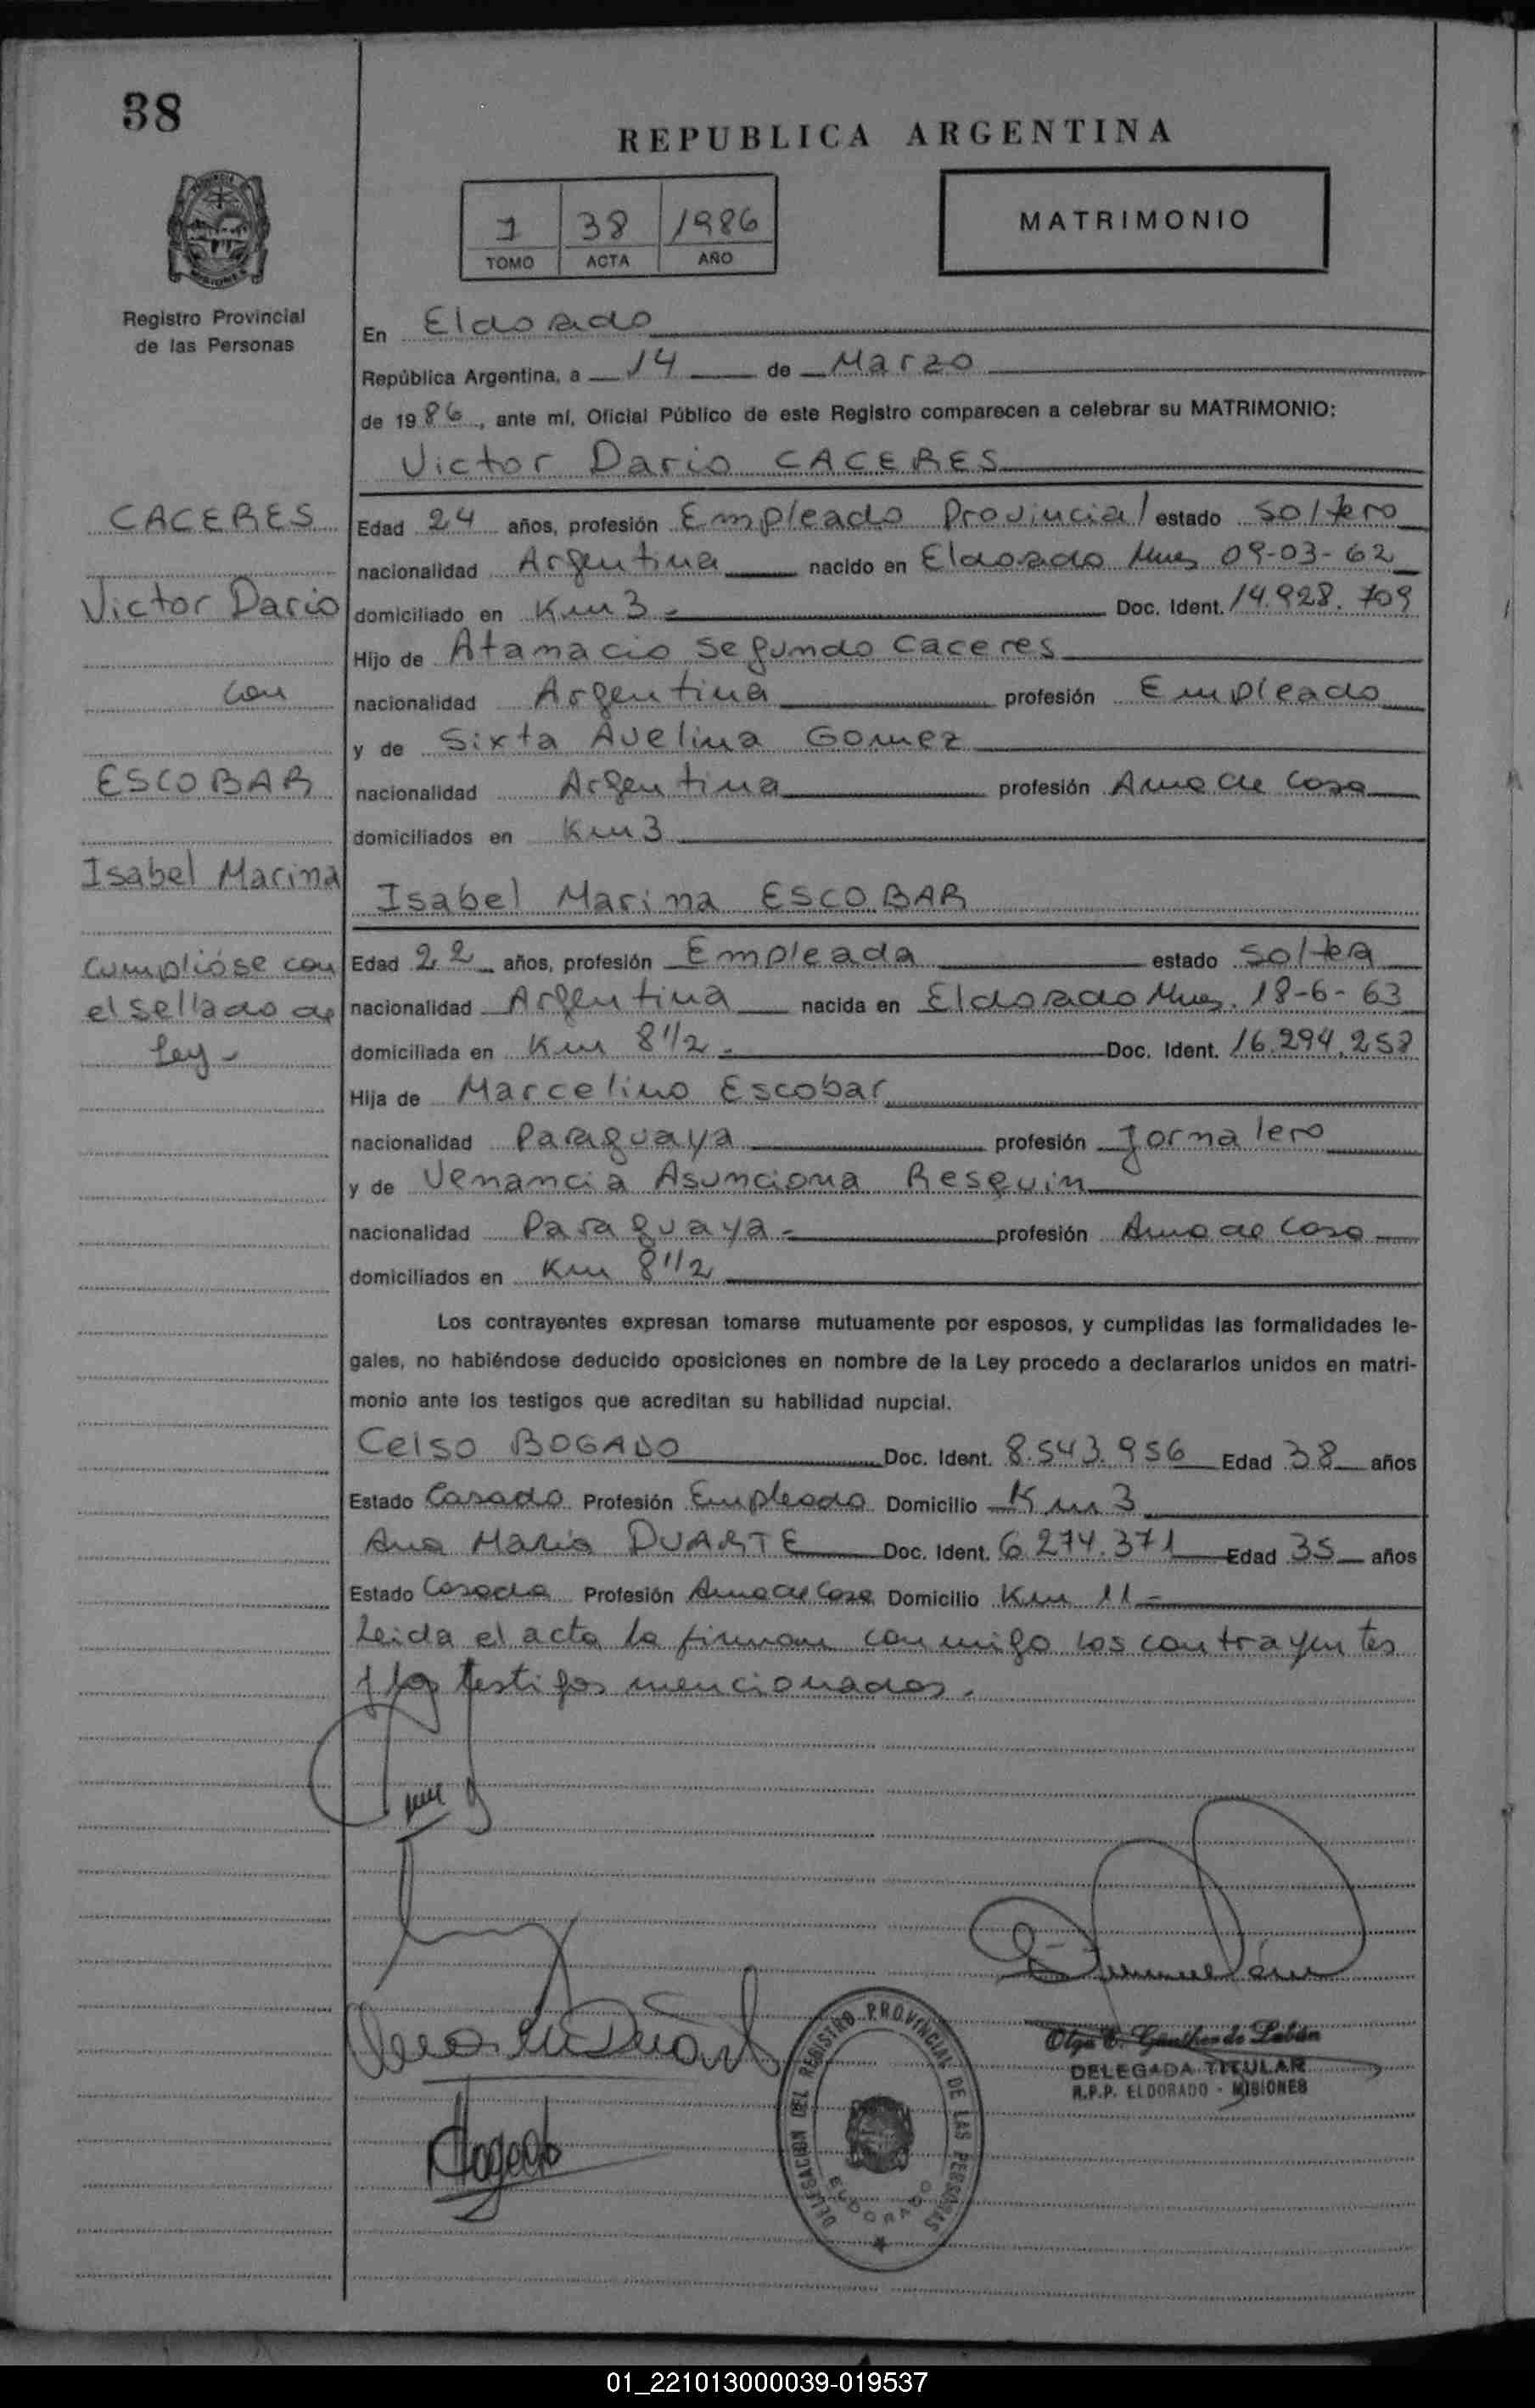 38
REPUBLICA ARGENTINA
1 38 1986
TOMO ACTA AÑO
MATRIMONIO
Registro Provincial
de las Personas
En Eldorado
República Argentina, a 14 de Marzo
de 1986, ante mí, Oficial Público de este Registro comparecen a celebrar su MATRIMONIO:
Victor Dario CACERES
CACERES
Victor Dario
con
ESCOBAR
Isabel Marina
cumplióse con
el sellado de
Ley-
Edad 24 años, profesión Empleado Provincial estado soltero
nacionalidad Argentina nacido en Eldorado Mnes 09-03-62
domiciliado en Km 3 - Doc. Ident. 14.928.709
Hijo de Atamacio Segundo Caceres
nacionalidad Argentina profesión Empleado
y de Sixta Avelina Gomez
nacionalidad Argentina profesión Ama de Casa
domiciliados en Km 3
Isabel Marina ESCOBAR
Edad 22 años, profesión Empleada estado soltera
nacionalidad Argentina nacida en Eldorado Mnes. 18-6-63
domiciliada en Km 8 1/2 - Doc. Ident.
Hija de Marcelino Escobar
nacionalidad Paraguaya profesión Jornalero
y de Venancia Asunciona Resquin
nacionalidad Paraguaya - profesión Ama de Casa
domiciliados en Km 8 1/2
Los contrayentes expresan tomarse mutuamente por esposos, y cumplidas las formalidades le-
gales, no habiéndose deducido oposiciones en nombre de la Ley procedo a declararlos unidos en matri-
monio ante los testigos que acreditan su habilidad nupcial.
Celso BOGADO Doc. Ident. 8.543.956 Edad 38 años
Estado Casado Profesión Empleado Domicilio Km 3
Ana Maria DUARTE Doc. Ident. 6.274.371 Edad 35 años
Estado Casada Profesión Ama de Casa Domicilio Km 11 -
Leida el acta la firman conmigo los contrayentes
y los testigos mencionados.
DELEGACION DEL REGISTRO PROVINCIAL DE LAS PERSONAS
ELDORADO
Olga E. Günther de Labán
DELEGADA TITULAR
R.P.P. ELDORADO - MISIONES
01_221013000039-019537